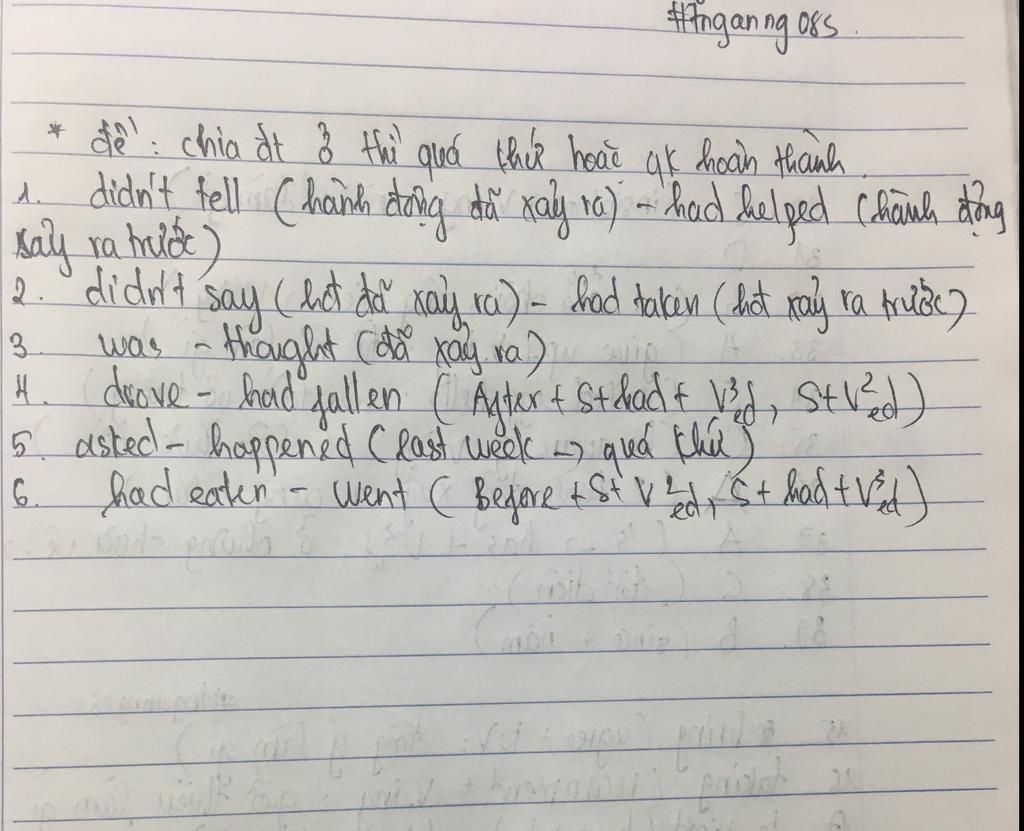 #tnganng085.
* đề: chia đt ở thì quá thứ hoặc qk hoàn thành.
1. didn't tell (hành động đã xảy ra) - had helped (hành động
xảy ra trước)
2. didn't say (hđ đã xảy ra) - had taken (hđ xảy ra trước)
3. was - thought (đã xảy ra)
4. drove - had fallen (After + S + had + V3ed, S + V2ed)
5. asked - happened (last week -> quá khứ)
6. had eaten - went (Before + S + V2ed, S + had + V3ed)